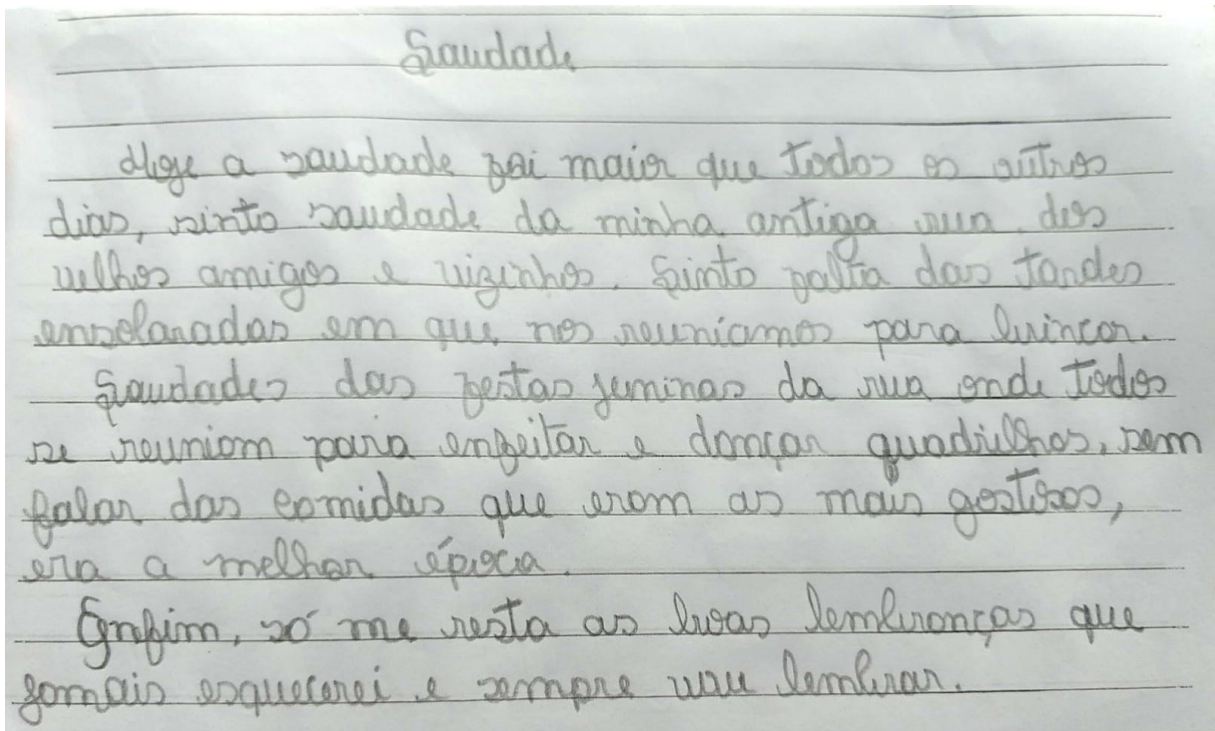 Saudade
Hoje a saudade foi maior que todos os outros
dias, sinto saudade da minha antiga rua dos
velhos amigos e vizinhos. Sinto falta das tardes
ensolaradas em que nos reuniamos para brincar.
Saudades das festas juninas da rua onde todos
se reuniam para enfeitar e dançar quadrilhas, sem
falar das comidas que eram as mais gostosas,
era a melhor época.
Enfim, só me resta as boas lembranças que
jamais esquecerei e sempre vou lembrar.